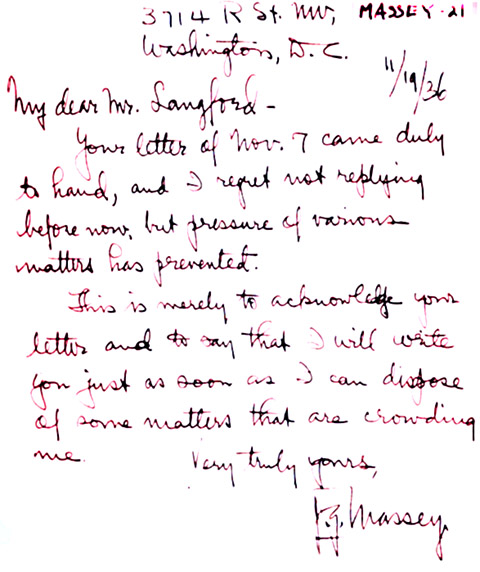 3714 R St. NW, MASSEY-21
Washington, D.C.
11/19/36
My dear Mr. Langford -
Your letter of Nov. 7 came duly
to hand, and I regret not replying
before now, but pressure of various
matters has prevented.
This is merely to acknowledge your
letter and to say that I will write
you just as soon as I can dispose
of some matters that are crowding
me.
Very truly yours,
Massey.